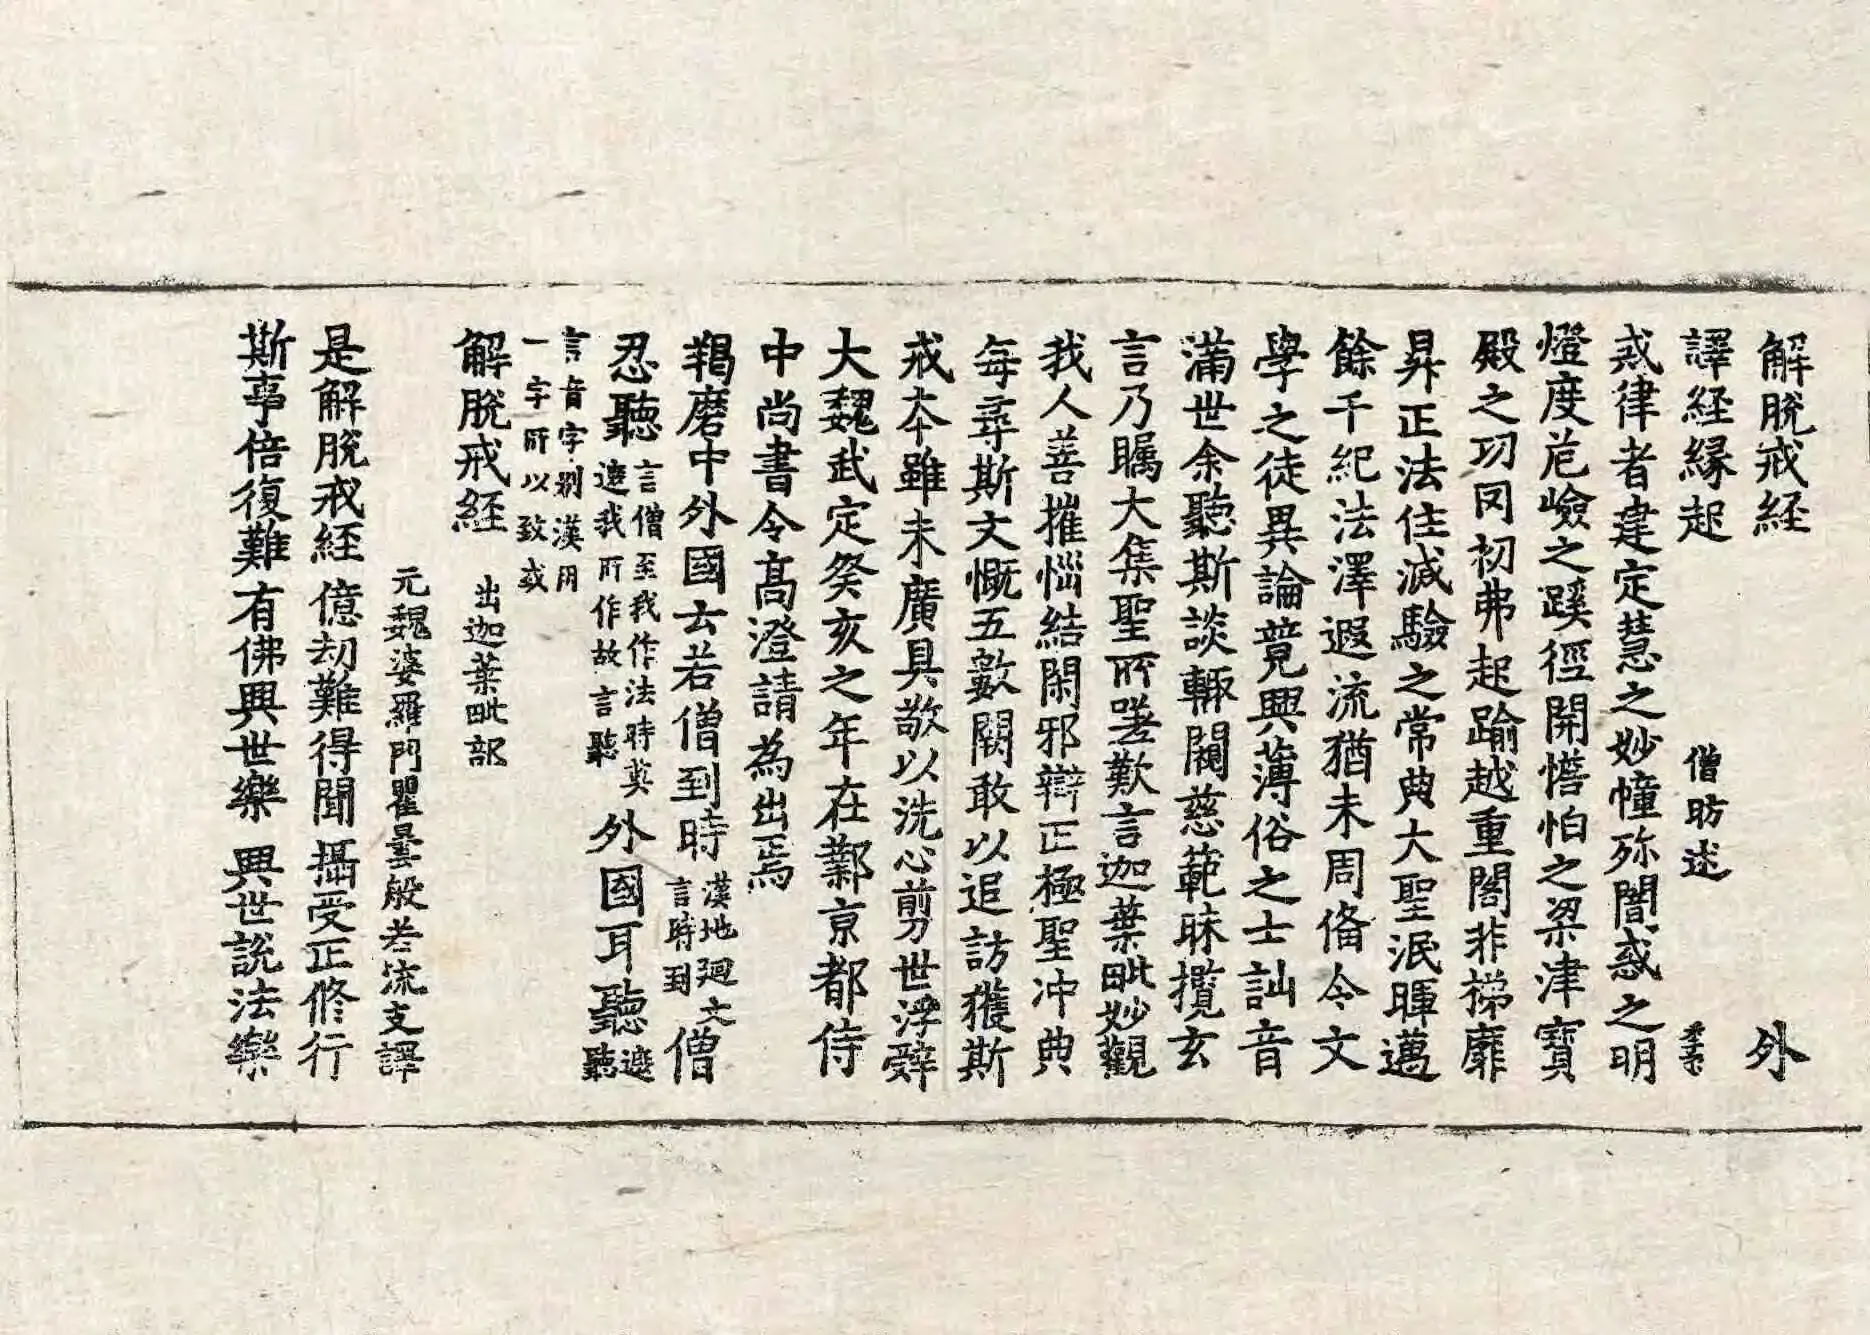 解脫戒經 外
譯經縁起 僧昉述
戒律者建定慧之妙幢殄闇惑之明
燈度危嶮之蹊徑開憺怕之梁津寳
殿之功囚初弗起踰越重閣非梯靡
昇正法住滅驗之常典大聖泯暉邁
餘千紀法澤遐流猶未周俻令文
學之徒異論競興薄俗之士訕音
滿世余聽斯談輙閱慈範昧攬玄
言乃矚大集聖所嗟歎言迦葉毗妙觀
我人善摧惱結閑邪辯正極聖冲典
每尋斯文慨五數闕敢以追訪獲斯
戒本雖未廣具敬以洗心剪世浮辤
大魏武定癸亥之年在鄴京都侍
中尚書令髙澄請為出焉
羯磨中外國云若僧到時 漢地迴文言時到 僧
忍聽 言僧至我作法時莫違我所作故言聽 外國耳聽 遮聽
言音字別漢用
一字所以致或
解脫戒經 出迦葉毗部
元魏婆羅門瞿曇般若流支譯
是解脫戒經 億劫難得聞 攝受正修行
斯事倍復難 有佛興世樂 興世說法樂